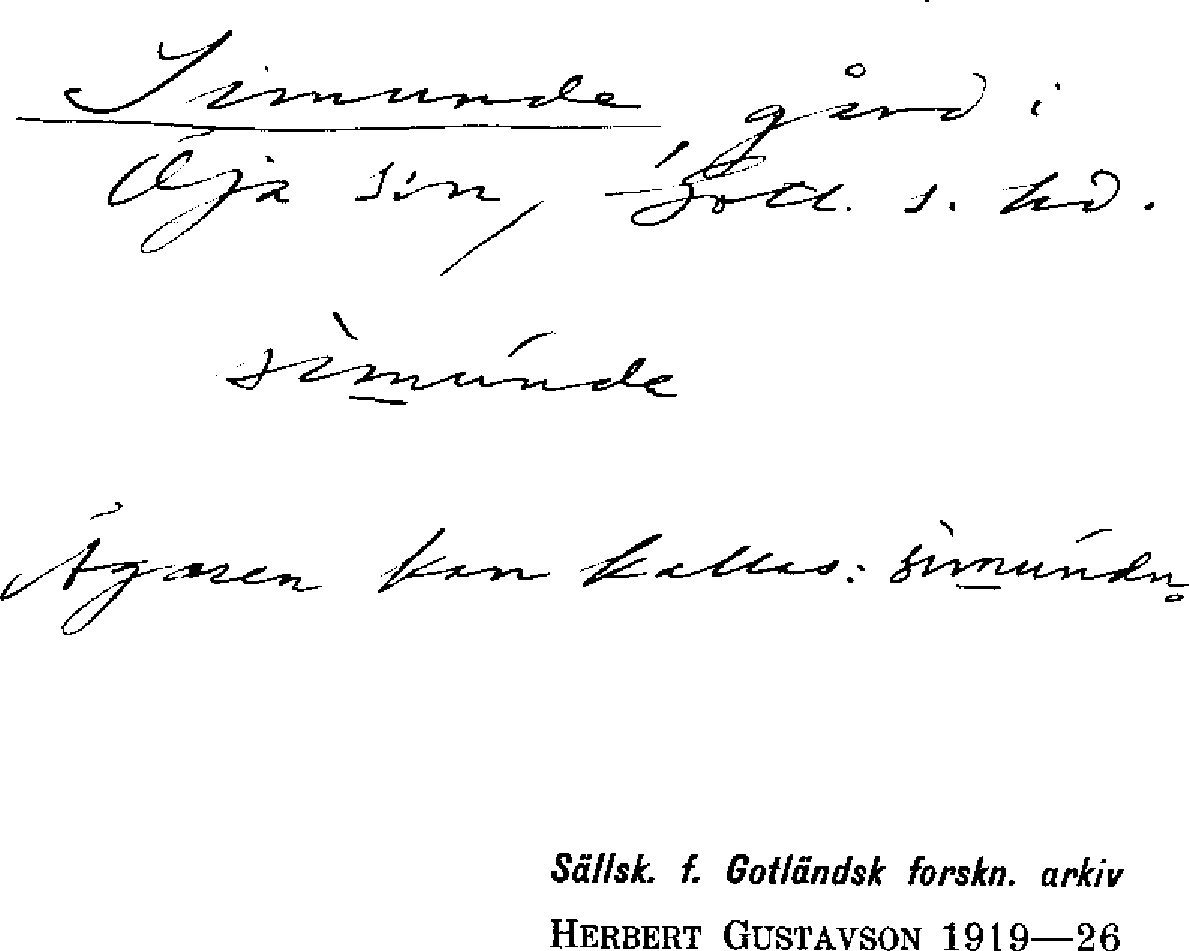 Simunde, gård i
Öja sn, Gotl. s. hd.
sìmúnde
Ägaren kan kallas: sìmúndn̥
Sällsk. f. Gotländsk forskn. arkiv
HERBERT GUSTAVSON 1919—26